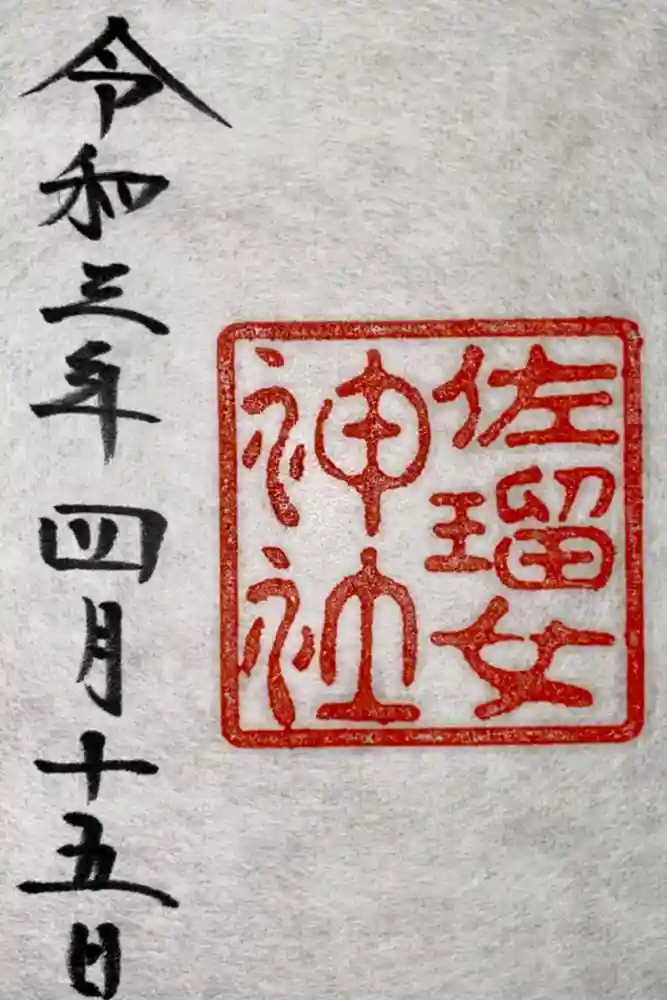 佐瑠女
神社
令和三年四月十五日